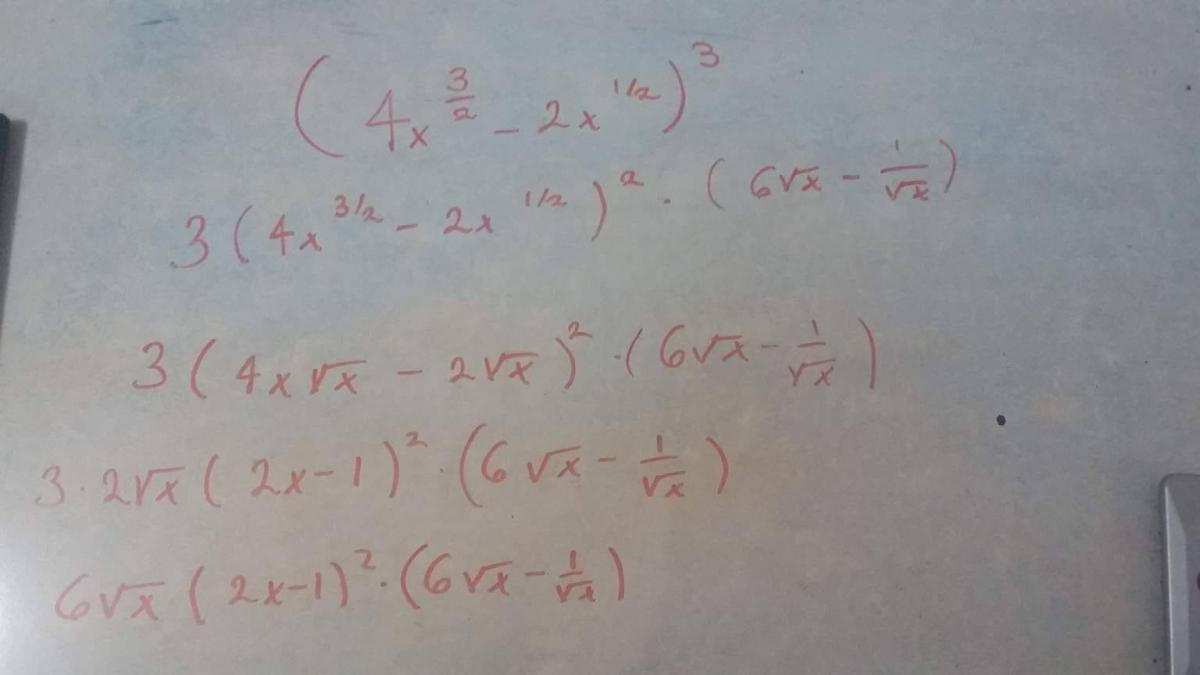 (4x^{3/2} - 2x^{1/2})^3
3(4x^{3/2} - 2x^{1/2})^2 · (6√x - 1/√x)
3(4x√x - 2√x)^2 · (6√x - 1/√x)
3·2√x(2x-1)^2 · (6√x - 1/√x)
6√x(2x-1)^2 · (6√x - 1/√x)